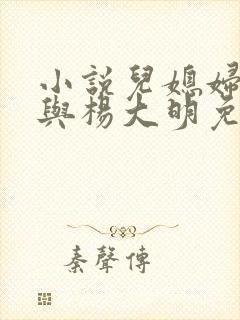 小說兒媳婦
與楊大明免
秦聲傳